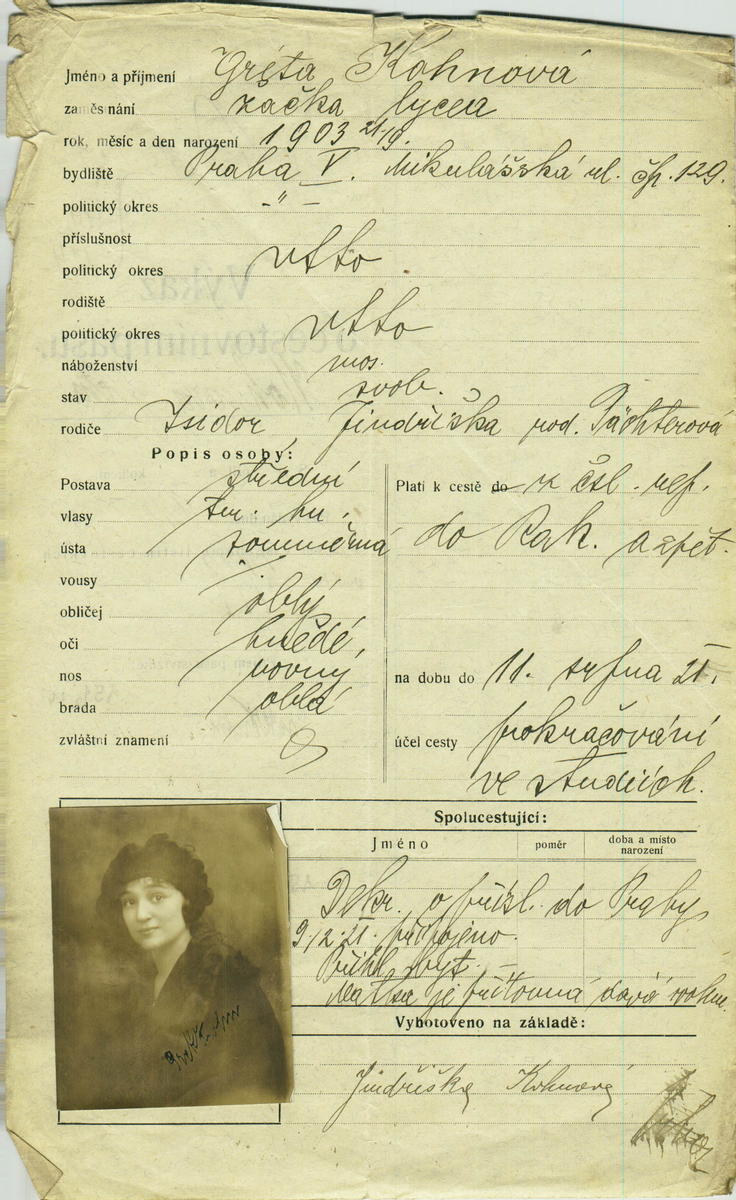 Jméno a příjmení Gréta Kohnová
zaměstnání žačka lycea
rok, měsíc a den narození 1903 21/9.
bydliště Praha V. Mikulášská ul. čp. 129.
politický okres -"-
příslušnost
politický okres
rodiště
politický okres
náboženství mos.
stav svob.
rodiče Isidor, Jindřiška rod. Pächterová
Popis osoby:
Postava střední
vlasy tm. hn.
ústa souměrná
vousy
obličej oblý
oči hnědé,
nos rovný
brada oblá
zvláštní znamení
Platí k cestě do z čsl. rep.
do Rak. a zpět.
na dobu do 11. srpna 21.
účel cesty pokračování
ve studiích.
Spolucestující:
Jméno poměr doba a místo narození
Dekr. o přísl. do Prahy
9./2. 21. připojeno.
Přihl. byt. –
Matka je přítomna dává
Vyhotoveno na základě:
Jindřiška Kohnová